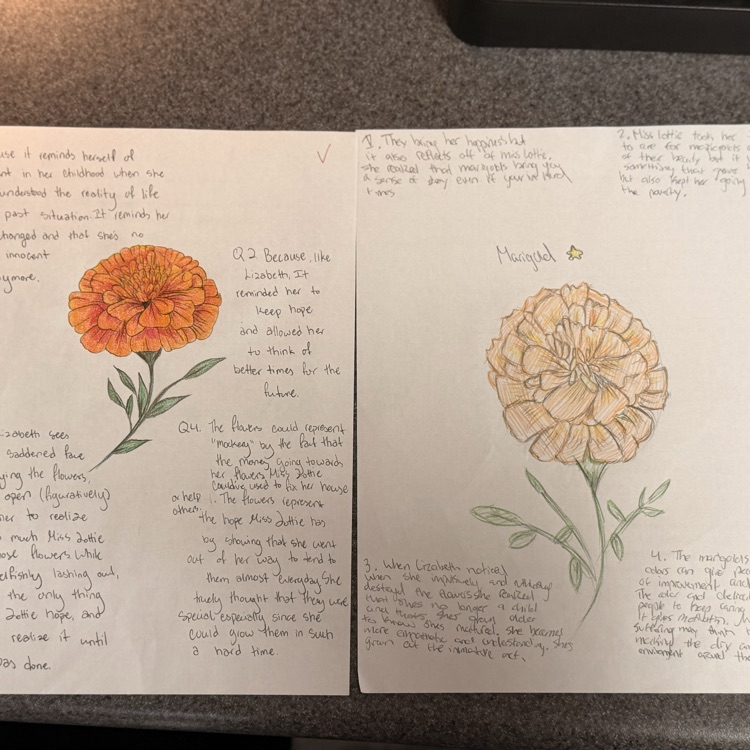 use it reminds herself of
nt in her childhood when she
understood the reality of life
past situation. It reminds her
changed and that she's no
innocent
ymore.
Q2 Because, like
Lizabeth, It
reminded her to
keep hope
and allowed her
to think of
better times for the
future.
izabeth sees
saddened face
ying the flowers,
open (figuratively)
her to realize
much Miss Lottie
ose flowers while
elfishly lashing out,
the only thing
Lottie hope, and
realize it until
was done.
Q4. The flowers could represent
"mockery" by the fact that
the money going towards
her flowers Miss Lottie
could've used to fix her house
or help
others.
The flowers represent
the hope Miss Lottie has
by showing that she went
out of her way to tend to
them almost everyday. She
truely thought that they were
special especially since she
could grow them in such
a hard time.
1. They bring her happiness but
it also reflects off of miss lottie,
she realized that marigolds bring you
a sense of even if your in hard
times
2. Miss lottie took her
to care for marigolds
of their beauty but it
something that gave
but also kept her going
the poverty.
Marigold
3. When Lizabeth noticed
when she impulsively and
destroyed the flowers she realized
that shes no longer a child
and thats she grown older
to know shes matured. she became
more empathetic and understanding. shes
grown out the immature act.
4. The marigolds
colors can give
of improvement and
The color and
people to keep
It gives motivation.
suffering may think
mocking the dry
environment around the